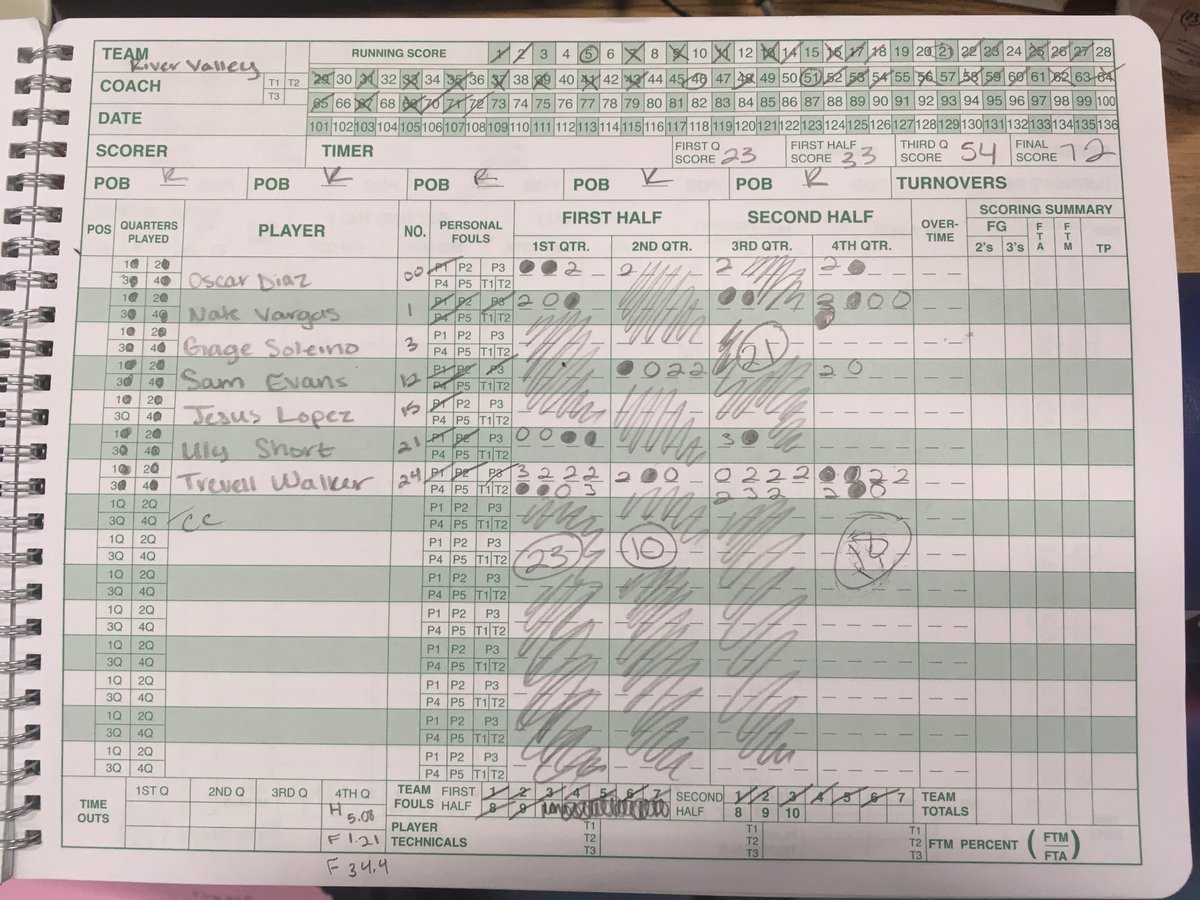 TEAM River Valley
RUNNING SCORE 1 2 3 4 5 6 7 8 9 10 11 12 13 14 15 16 17 18 19 20 21 22 23 24 25 26 27 28
COACH T1 T2 T3
29 30 31 32 33 34 35 36 37 38 39 40 41 42 43 44 45 46 47 48 49 50 51 52 53 54 55 56 57 58 59 60 61 62 63 64
65 66 67 68 69 70 71 72 73 74 75 76 77 78 79 80 81 82 83 84 85 86 87 88 89 90 91 92 93 94 95 96 97 98 99 100
DATE
101 102 103 104 105 106 107 108 109 110 111 112 113 114 115 116 117 118 119 120 121 122 123 124 125 126 127 128 129 130 131 132 133 134 135 136
SCORER TIMER FIRST Q SCORE 23 FIRST HALF SCORE 33 THIRD Q SCORE 54 FINAL SCORE 72
POB R POB R POB R POB R POB R TURNOVERS
POS QUARTERS PLAYED PLAYER NO. PERSONAL FOULS FIRST HALF SECOND HALF OVER-TIME SCORING SUMMARY
1ST QTR. 2ND QTR. 3RD QTR. 4TH QTR. FG 2's 3's FTA FTM TP
1Q 2Q P1 P2 P3 2 2 2 2
3Q 4Q Oscar Diaz 00 P4 P5 T1 T2
1Q 2Q P1 P2 P3 2 0 0 0
3Q 4Q Nate Vargas 1 P4 P5 T1 T2
1Q 2Q P1 P2 P3 21
3Q 4Q Gage Soleino 3 P4 P5 T1 T2
1Q 2Q P1 P2 P3 0 2 2 2 0
3Q 4Q Sam Evans 12 P4 P5 T1 T2
1Q 2Q P1 P2 P3
3Q 4Q Jesus Lopez 15 P4 P5 T1 T2
1Q 2Q P1 P2 P3 0 0 3
3Q 4Q Uly Short 21 P4 P5 T1 T2
1Q 2Q P1 P2 P3 3 2 2 2 2 0 0 2 2 2 2 2
3Q 4Q Trevell Walker 24 P4 P5 T1 T2 0 3 2 3 2 2 0
1Q 2Q P1 P2 P3
3Q 4Q CC P4 P5 T1 T2
1Q 2Q P1 P2 P3 23 10
3Q 4Q P4 P5 T1 T2
1Q 2Q P1 P2 P3
3Q 4Q P4 P5 T1 T2
1Q 2Q P1 P2 P3
3Q 4Q P4 P5 T1 T2
1Q 2Q P1 P2 P3
3Q 4Q P4 P5 T1 T2
1Q 2Q P1 P2 P3
3Q 4Q P4 P5 T1 T2
1Q 2Q P1 P2 P3
3Q 4Q P4 P5 T1 T2
1Q 2Q P1 P2 P3
3Q 4Q P4 P5 T1 T2
TIME OUTS 1ST Q 2ND Q 3RD Q 4TH Q
TEAM FOULS FIRST HALF 1 2 3 4 5 6 7 8 9 SECOND HALF 1 2 3 4 5 6 7 8 9 10 TEAM TOTALS
H 5.08
F 1.21
F 34.4
PLAYER TECHNICALS T1 T2 T3 T1 T2 T3 T1 T2 T3 FTM PERCENT (FTM FTA)